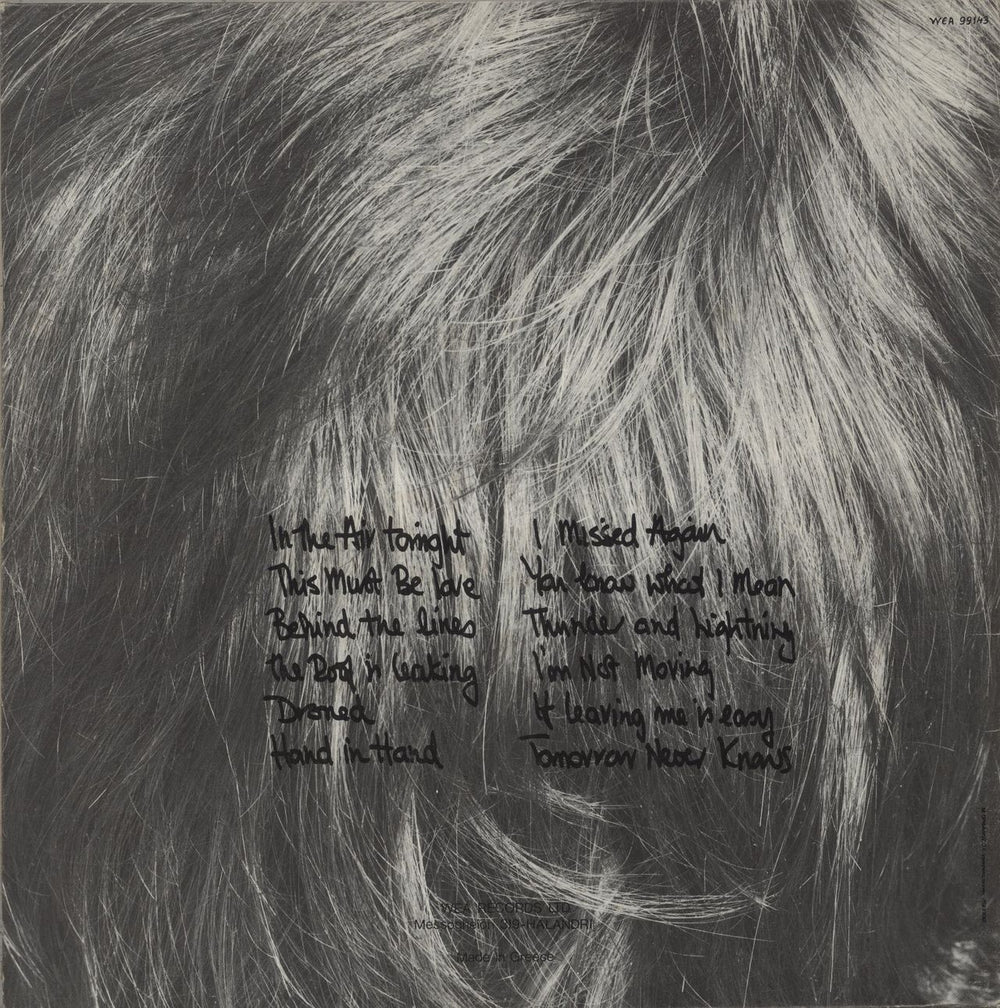 WEA 99143
In the Air tonight
This Must Be love
Behind the lines
the Roof is leaking
Droned
Hand in Hand
I Missed Again
You know what I Mean
Thunder and Lightning
I'm Not Moving
If leaving me is easy
Tomorrow Never Knows
WEA RECORDS LTD.
319-HALANDRI
Made in Greece